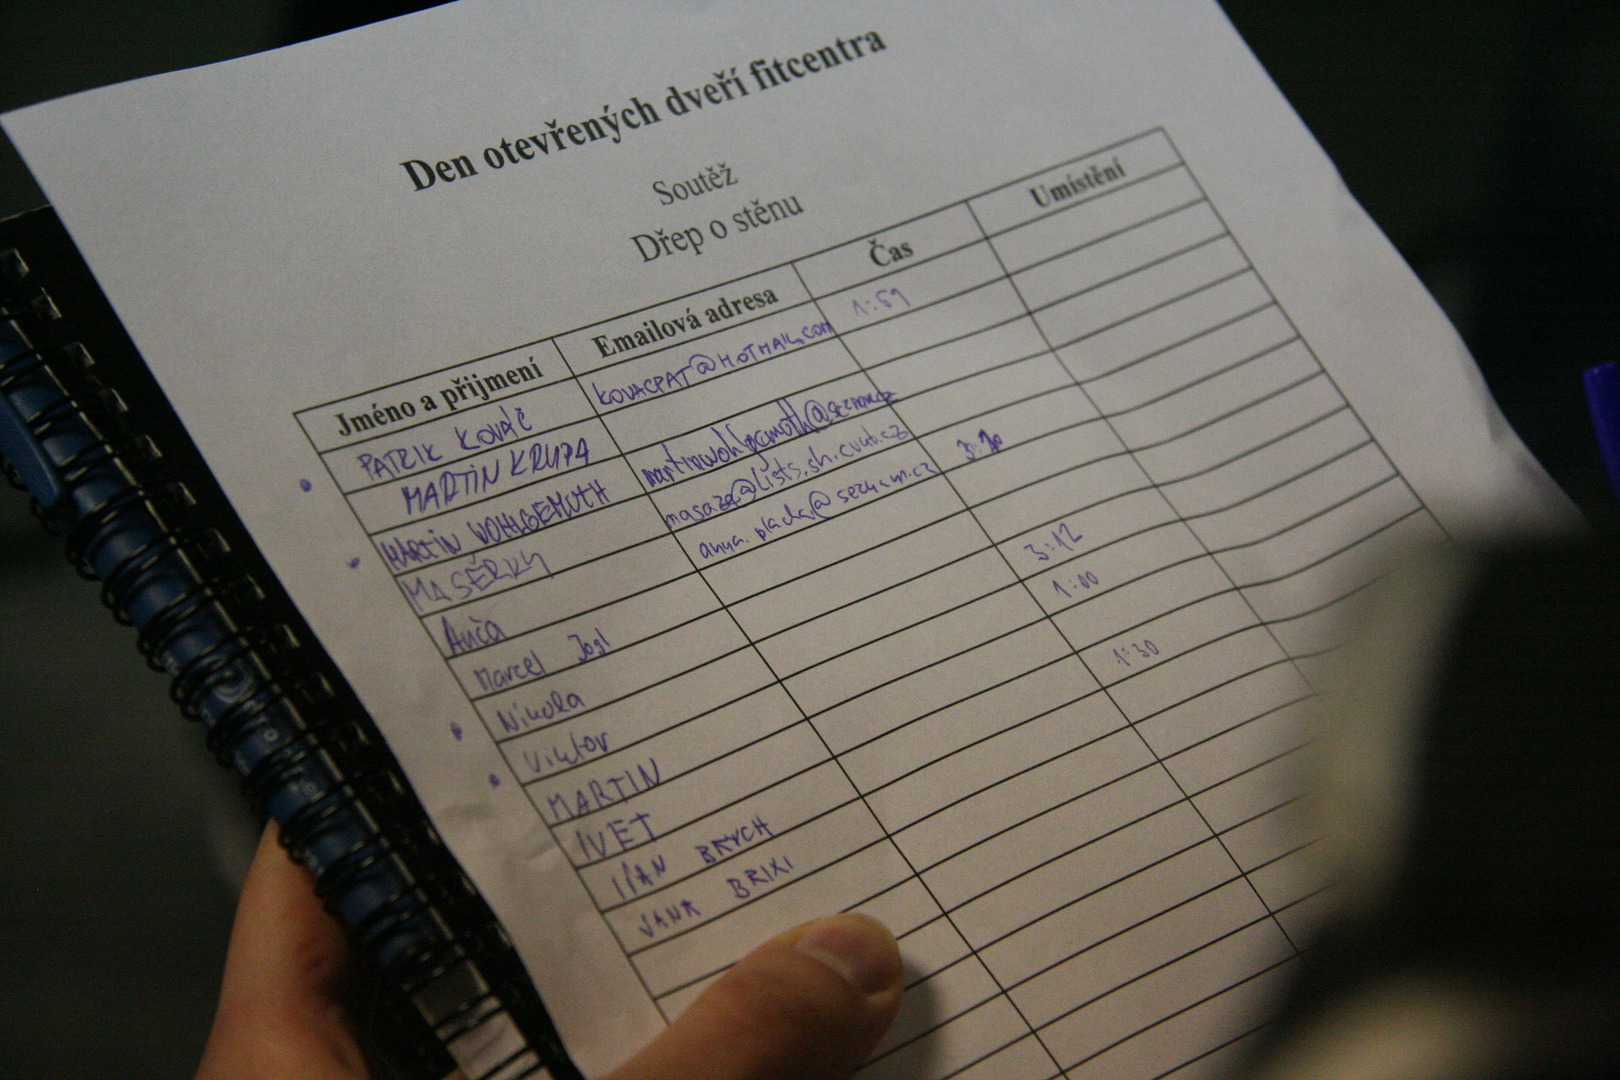 Den otevřených dveří fitcentra
Soutěž
Dřep o stěnu
Jméno a přijmení Emailová adresa Čas Umístění
PATRIK KOVÁČ KOVACPAT@HOTMAIL.COM 1:59
MARTIN KRUPA
MARTIN WOHLGEMUTH martinwohlgemuth@seznam.cz
MASÉRKY masaze@lists.sh.cvut.cz
Anča anna.placka@seznam.cz
Marcel Jogl
Nikola 3:12
Viktor 1:00
MARTIN
IVET 1:30
BRYCH
JANA BRIXI